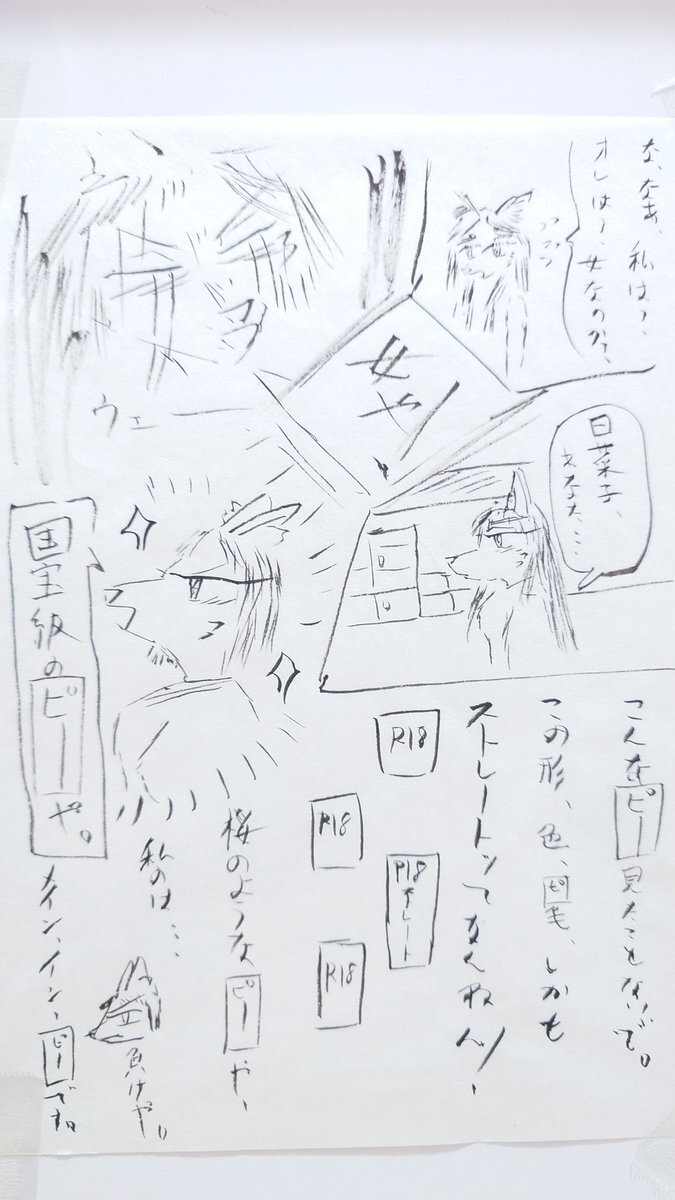 な、なあ、私は？、
オレは？、女なのか？、
女や
ウェー
日菜子、
あなた、…
こんなピー見たことないで。
この形、色、ピ毛、しかも
ストレートってなんやねん！、
R18
R18
R18
ストレート
R18
桜のようなピーや、
私のは…
負けや。
国宝級のピーや。
メイン、イン、ピーです。